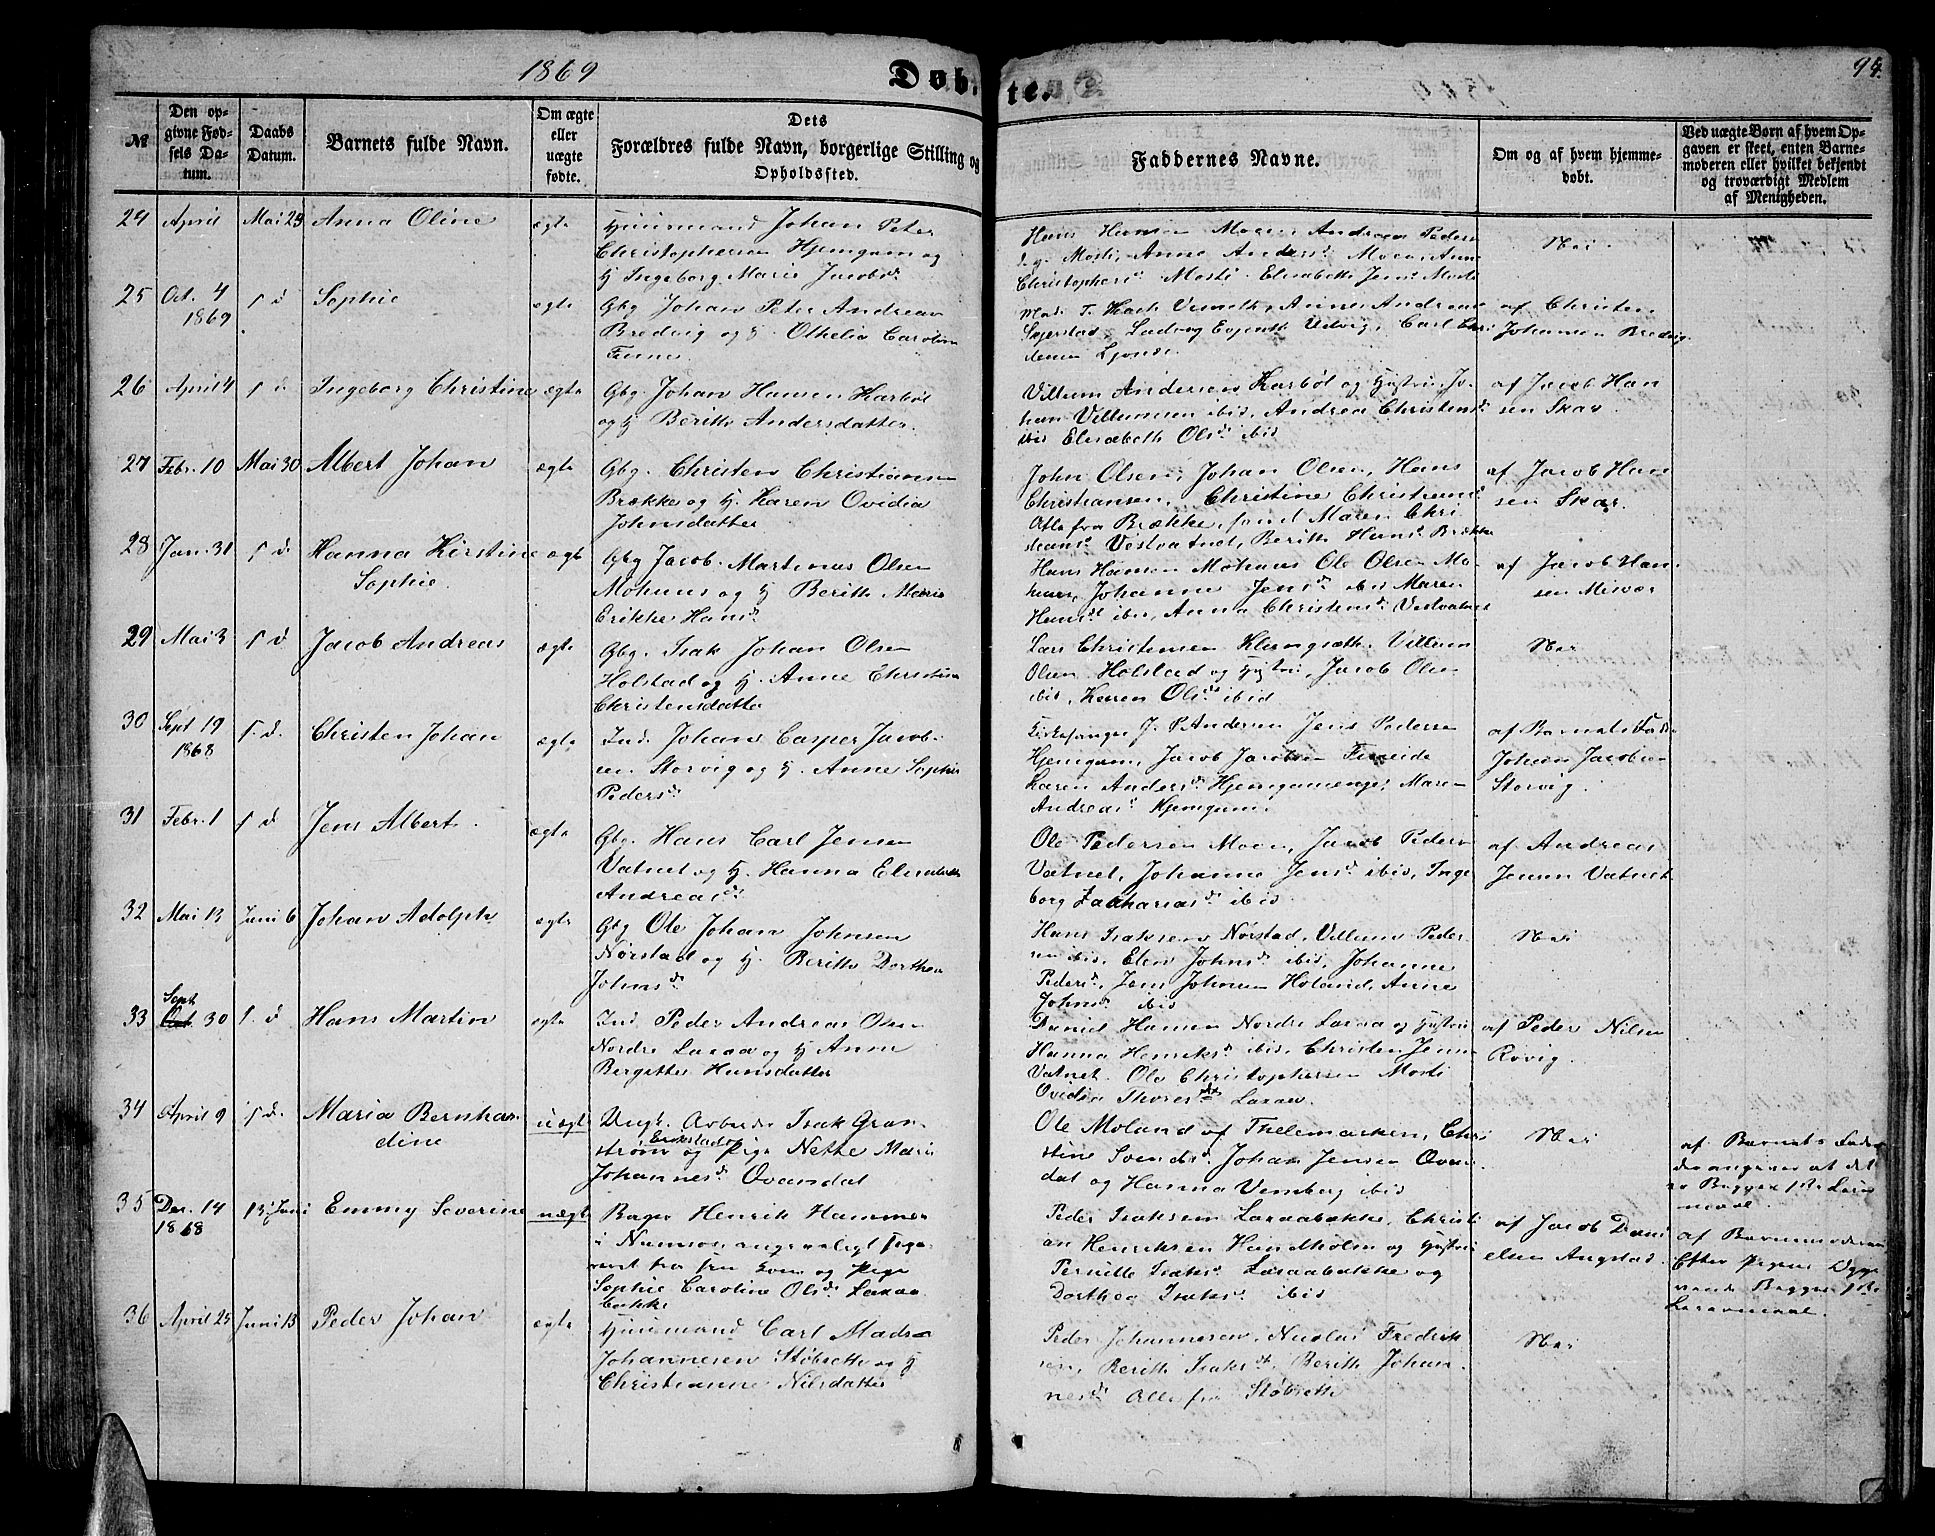 1869
Døbte.
94.
№
Den opgivne Fødsels Datum.
Daabs Datum.
Barnets fulde Navn.
Om ægte eller uægte fødte.
Dets
Forældres fulde Navn, borgerlige Stilling og
Opholdssted.
Faddernes Navne.
Om og af hvem hjemmedøbt.
Ved uægte Børn af hvem Opgaven er skeet, enten Barnemoderen eller hvilket bekjendt og troværdigt Medlem af Menigheden.
24 April Mai 23 Anna Oline ægte
Huusmand Johan Peter
Christophersen Hjemgam og
H Ingeborg Marie Jacobsd.
Hans Hansen Moen, Andreas Peders
Mosti, Anne Andersd. Moen, Ann
Christophersd. Mosti. Elisabeth Jensd. Mosti
Nei.
25 Oct. 4 1869 s d Sophie ægte
Gbg. Johan Peter Andreas
Bredvig og H. Othelia Caroline
Anne Andreas
Ludvig Carl Chri
af Christen
Johansen Bredvig
26 April 4 s d. Ingeborg Christine ægte
Gbg. Johan Hansen Karbøl
og H Berith Andersdatter.
Villum Andersen Karbøl og Hustru, Jo-
han Villumsen ibid, Andrea Christensd.
ibid Elisabeth Olsd. ibid
af Jacob Han
sen Skar.
27 Febr. 10 Mai 30 Albert Johan ægte
Gbg. Christen Christiansen
Brække og H. Karen Ovidia
Johnsdatter
John Olsen, Johan Olsen, Hans
Christiansen, Christine Christiansd.
Alle fra Brække, samt Maren Chri
stiansd. Vestvatnet, Berith Hansd. Brække
af Jacob Han
sen Skar.
28 Jan. 31 s d. Hanna Kirstine
Sophie. ægte
Gbg Jacob Martinus Olsen
Mohuus og H Berith Marie
Erikke Hansd.
Hans Hansen Mohuus Ole Olsen Mo-
huus, Johanne Jensd. ibid Maren
Hansd. ibid, Anna Christensd. Vestvatnet
af Jacob Han-
sen Misvær
29 Mai 3 s d Jacob Andreas ægte
Gbg. Isak Johan Olsen
Holstad og H. Anne Christine
Christensdatter
Lars Christensen Klungsæth, Villum
Olsen Holstad og Hustru, Jacob Olsen
ibid, Karen Olsd. ibid
Nei
30 Sept 19 1868 s. d. Christen Johan ægte
Ind. Johan Casper Jacob-
sen Storvig og H. Anne Sophie
Pedersd.
Kirkesanger J. P. Andersen Jens Pedersen
Hjemgam, Jacob Jacobsen Fineide
Karen Andersd. Hjemgamenge, Maren
Andreasd. Hjemgam.
af Barnets Fader
Johan Jacobsen
Storvig.
31 Febr. 1 s d. Jens Albert. ægte
Gbg. Hans Carl Jensen
Vatnet og H. Hanna Elisabeth
Andreasd.
Ole Pedersen Moen, Jacob Pedersen
Vatnet, Johanne Jensd. ibid, Inge
borg Zachariasd. ibid
af Andreas
Jensen Vatnet
32 Mai 13 Juni 6 Johan Adolph ægte
Gbg Ole Johan Johnsen
Nørstad og H. Berith Dorthea
Johnsd.
Hans Isaksen Nørstad, Villum Peder
sen ibid, Elen Johnsd. ibid, Johanne
Pedersd., Jens Johnsen Høland, Anne
Johnsd. ibid
Nei
33 Sept Oct. 30 s. d Hans Martin ægte
Ind. Peder Andreas Olsen
Nordre Laxaa og H Anne
Bergitte Hansdatter
Daniel Hansen Nordre Laxaa og Hustru
Hanna Henriksd. ibid, Christen Jensen
Vatnet. Ole Christophersen Mosti
Ovidia Thoresd. Laxaa
af Peder Nilsen
Røvig.
34 April 9 s d. Maria Bernhar
dine uægte
Ungk. Arbeider Isak Gran-
strøm og Enkstad Pige Nette Marie
Johannesd. Qvændal
Ole Moland af Thelemarken, Chri
stine Svendsd. Johan Jensen Qvæn
dal og Hanna Vemberg ibid
Nei
af Barnets Fader
der angiver at det
er Begges 1ste Leier
maal.
35 Dec. 14 1868 13 Juni Emmy Severine uægte
Bager Henrik Hammer
i Namsos, angivelig
og Pige
Sophie Caroline Olsd. Laxaa
bakke
Peder Isaksen Laxaabakke, Christi
an Henriksen Handholm og Hustru
Pernille Isaksd. Laxaabakke og
Dorthea Isaksd. ibid
af Jacob Dani
elsen Angstad.
af Barnemoderen
Efter Pigens Opgi
vende Begges 1ste
Leiermaal.
36 April 25 Juni 13 Peder Johan ægte
Huusmand Carl Mads
Johannesen Støbreth og H
Christianne Nilsdatter
Peder Johannesen, Nicolai Fredrik
sen, Berith Isaksd., Berith Johan-
nesd. Alle fra Støbreth
Nei